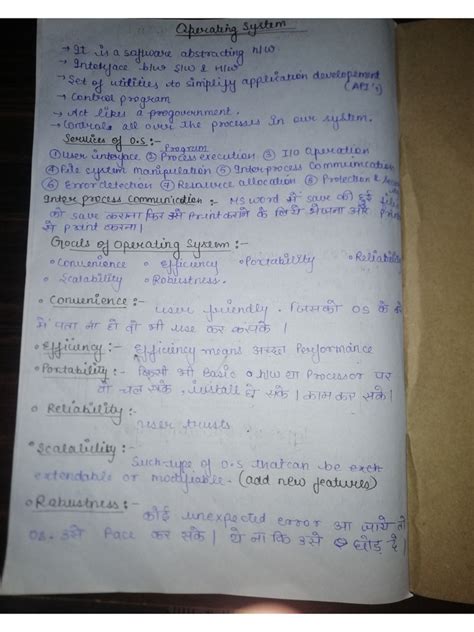 Operating System
→ It is a software abstracting h/w
→ Interface b/w S/W & H/W
→ Set of utilities to simplify application development
(API's)
→ Control program
→ Act likes a government.
→ Controls all over the processes In our system.
Services of O.S:- Program
① User interface ② Process execution ③ I/O operation
④ File system manipulation ⑤ Interprocess Communication
⑥ Error detection ⑦ Resource allocation ⑧ Protection &
Inter process communication:- MS word में save की हुई
को save करना फिर भी Print कराने के लिये भेजना और
से print करना।
Goals of Operating System:-
• Convenience • Efficiency • Portability • Reliability
• Scalability • Robustness.
• Convenience:- user friendly. जिसको OS के
में पता ना हो वो भी use कर सके।
• Efficiency:- Efficiency means अच्छा Performance
• Portability:- किसी भी Basic h/w या Processor पर
वो चल सके, install हो सके। काम कर सके।
• Reliability:-
user trusts
• Scalability:-
Such type of O.S that can be
extendable or modifiable. (add new features)
• Robustness:-
कोई unexpected error आ जाये तो
OS. उसे Face कर सके। ये ना कि उसे छोड़ दे।